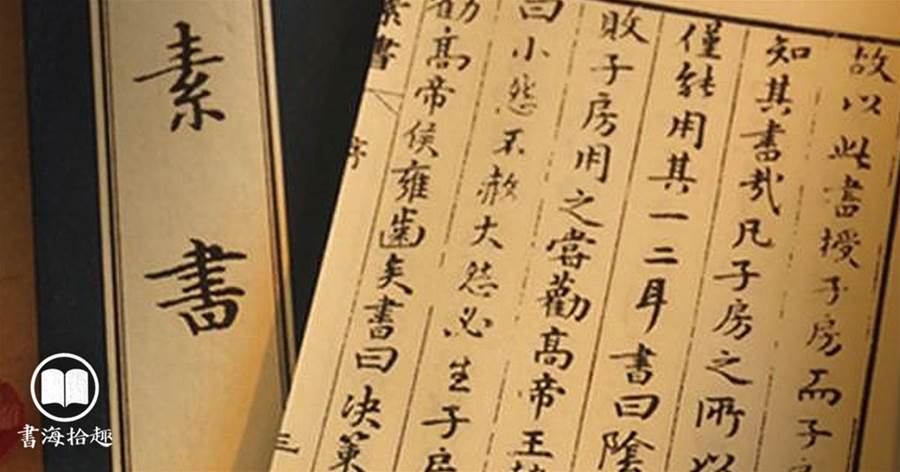 故以此書授子房而子
知其書哉凡子房之所以
僅能用其一二耳書曰陰
敗子房用之嘗勸高帝王
曰小怨不赦大怨必生子房
勸高帝侯雍齒矣書曰決策
素書
序
三
素書
書海拾趣